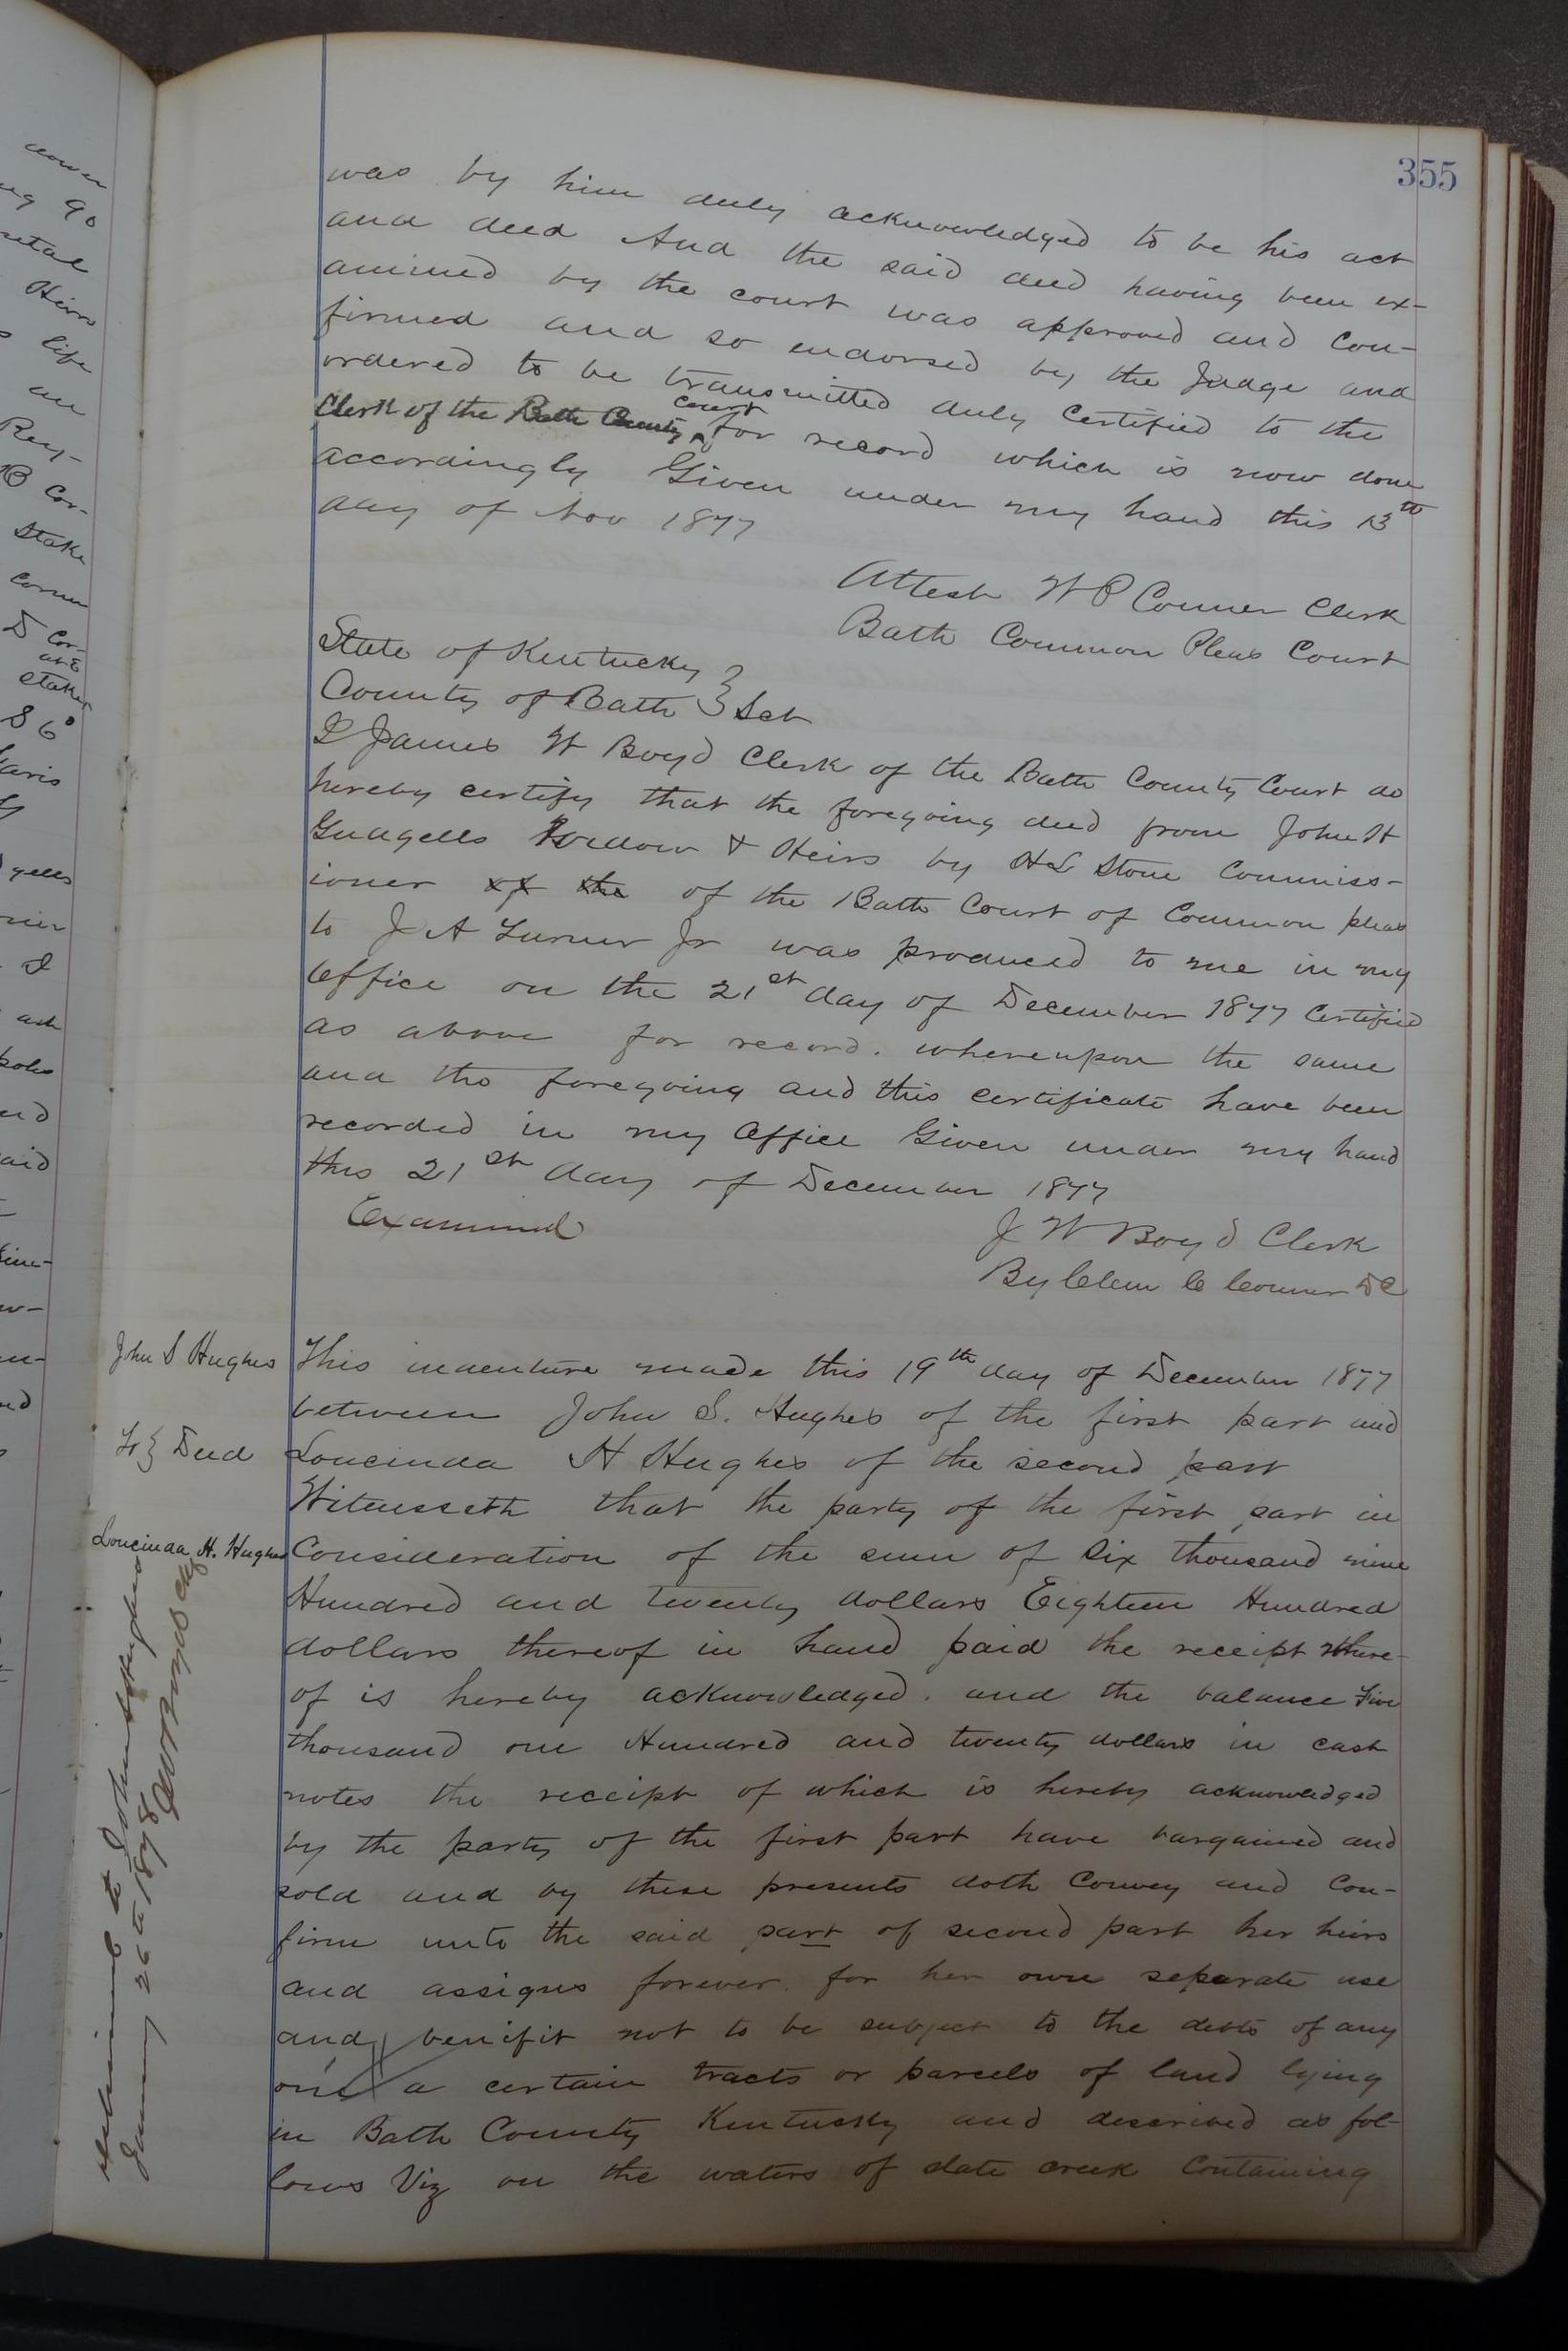 355
was by him duly acknowledged to be his act
and deed And the said deed having been ex-
amined by the court was approved and con-
firmed and so endorsed by the Judge and
ordered to be transmitted duly certified to the
Clerk of the Bath County Court for record which is now done
accordingly Given under my hand this 13th
day of Nov 1877
Attest W P Conner Clerk
Bath Common Pleas Court
State of Kentucky
County of Bath } Sct
I James W Boyd Clerk of the Bath County Court do
hereby certify that the foregoing deed from John H
Gudgells Widow & Heirs by H L Stone Commiss-
ioner of the of the Bath Court of Common pleas
to J A Turner Jr was produced to me in my
Office on the 21st day of December 1877 Certified
as above for record. whereupon the same
and the foregoing and this certificate have been
recorded in my Office Given under my hand
this 21st day of December 1877
Examined
J W Boyd Clerk
By Clem C Conner DC
John S Hughes
To } Deed
Loucinda H. Hughes
This indenture made this 19th day of December 1877
between John S. Hughes of the first part and
Loucinda H Hughes of the second part
Witnesseth that the party of the first part in
Consideration of the sum of Six thousand nine
Hundred and twenty dollars Eighteen Hundred
dollars thereof in hand paid the receipt where-
of is hereby acknowledged. and the balance Five
thousand one Hundred and twenty dollars in cash
notes the receipt of which is hereby acknowledged
by the party of the first part have bargained and
sold and by these presents doth Convey and Con-
firm unto the said part of second part her heirs
and assigns forever. for her own separate use
and benifit not to be subject to the debts of any
one a certain tracts or parcels of land lying
in Bath County Kentucky and described as fol-
lows Viz on the waters of slate creek Containing
Delivered to John S Hughes
January 26th 1878 J W Boyd clk